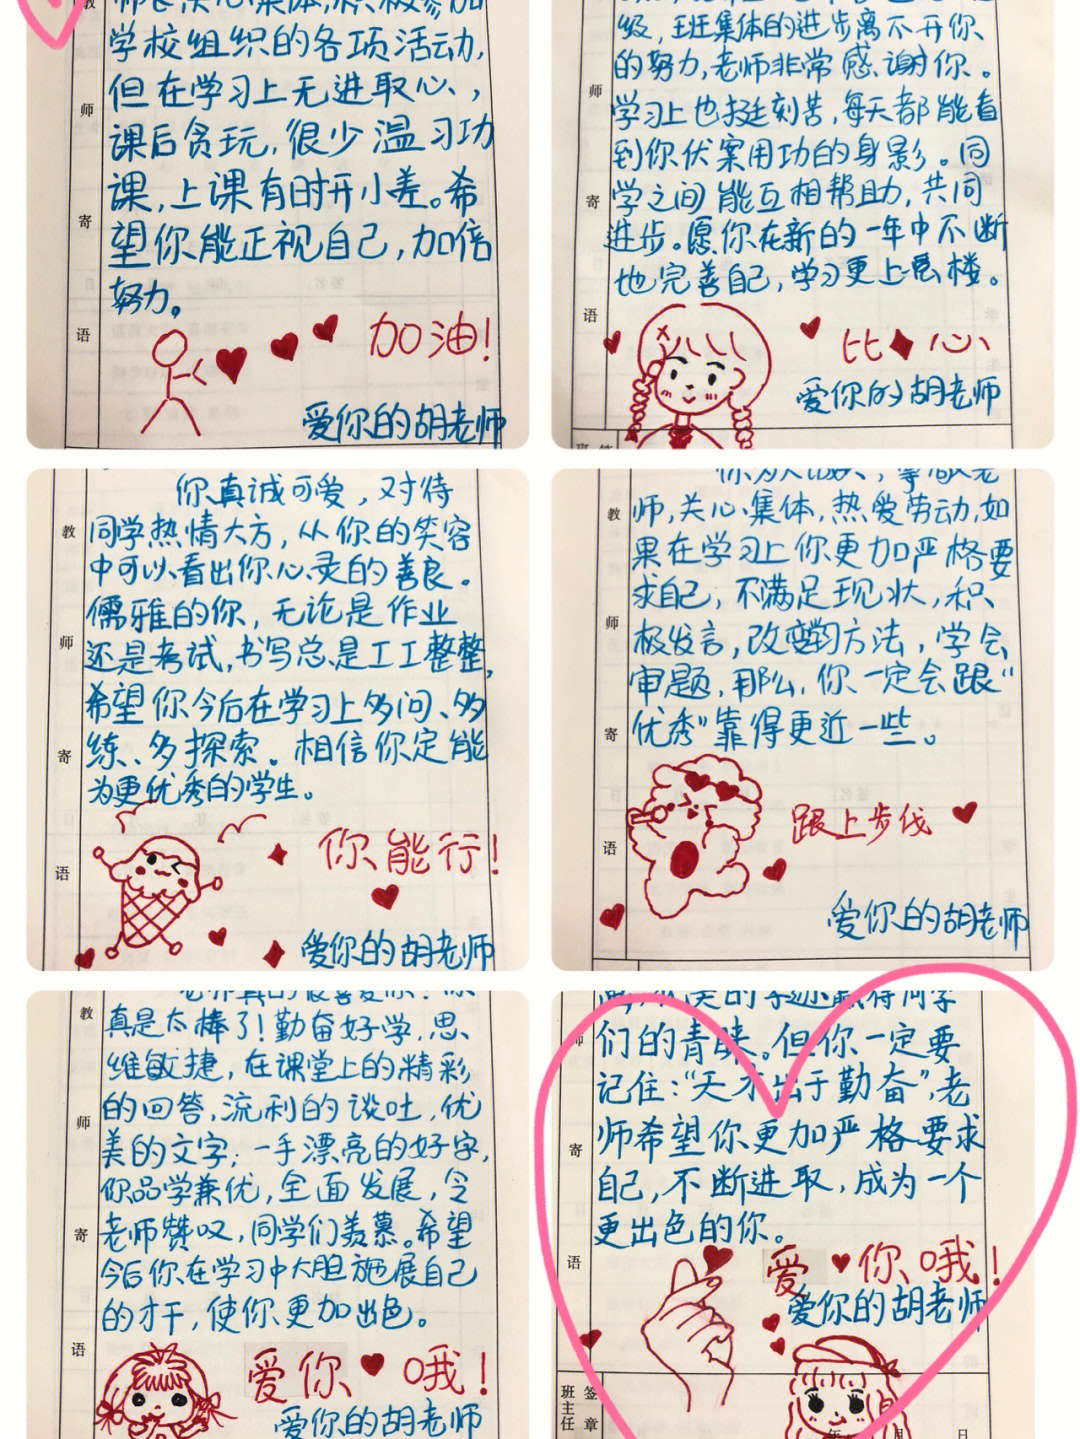 师长,关心集体,积极参加
学校组织的各项活动,
但在学习上无进取心,
课后贪玩,很少温习功
课,上课有时开小差。希
望你能正视自己,加倍
努力。
加油!
爱你的胡老师
教
师
寄
语
级,班集体的进步离不开你
的努力,老师非常感谢你。
学习上也挺刻苦,每天都能看
到你伏案用功的身影。同
学之间能互相帮助,共同
进步。愿你在新的一年中不断
地完善自己,学习更上一层楼。
比心
爱你的胡老师
师
寄
语
班 签
你真诚可爱,对待
同学热情大方,从你的笑容
中可以看出你心灵的善良。
儒雅的你,无论是作业
还是考试,书写总是工工整整,
希望你今后在学习上多问、多
练、多探索。相信你定能
为更优秀的学生。
你能行!
爱你的胡老师
教
师
寄
语
师,关心集体,热爱劳动,如
果在学习上你更加严格要
求自己,不满足现状,积
极发言,改变学习方法,学会
审题,那么,你一定会跟“
优秀”靠得更近一些。
跟上步伐
爱你的胡老师
教
师
寄
语
老师真的很喜爱你!你
真是太棒了!勤奋好学,思
维敏捷,在课堂上的精彩
的回答,流利的谈吐,优
美的文字;一手漂亮的好字,
你品学兼优,全面发展,令
老师赞叹,同学们羡慕。希望
今后你在学习中大胆施展自己
的才干,使你更加出色。
爱你哦!
爱你的胡老师
教
师
寄
语
们的青睐。但你一定要
记住:“天才出于勤奋”,老
师希望你更加严格要求
自己,不断进取,成为一个
更出色的你。
爱你哦!
爱你的胡老师
师
寄
语
班主任
签章
年 月 日